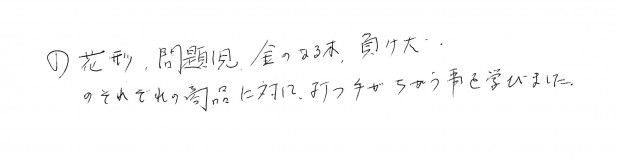 ① 花形、問題児、金のなる木、負け犬・・
のそれぞれの商品に対して、打つ手がちがう事を学びました。